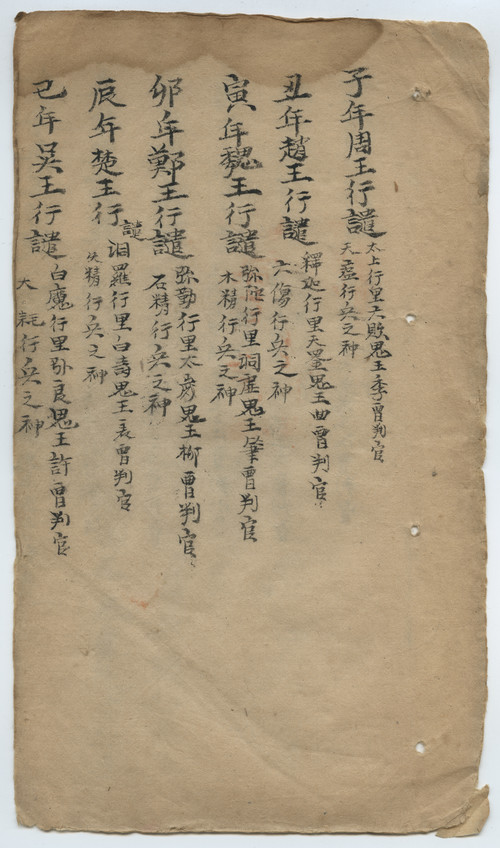 子年周王行譴
太上行里天敗鬼王李曹判官
天虛行兵之神
丑年趙王行譴
釋迦行里天罣鬼王曲曹判官
六傷行兵之神
寅年魏王行譴
弥陀行里洞虛鬼王肇曹判官
木精行兵之神
卯年鄭王行譴
弥勒行里太彦鬼王柳曹判官
石精行兵之神
辰年楚王行譴
洄羅行里白壽鬼王表曹判官
火精行兵之神
巳年吳王行譴
白魔行里弥良鬼王許曹判官
大耗行兵之神